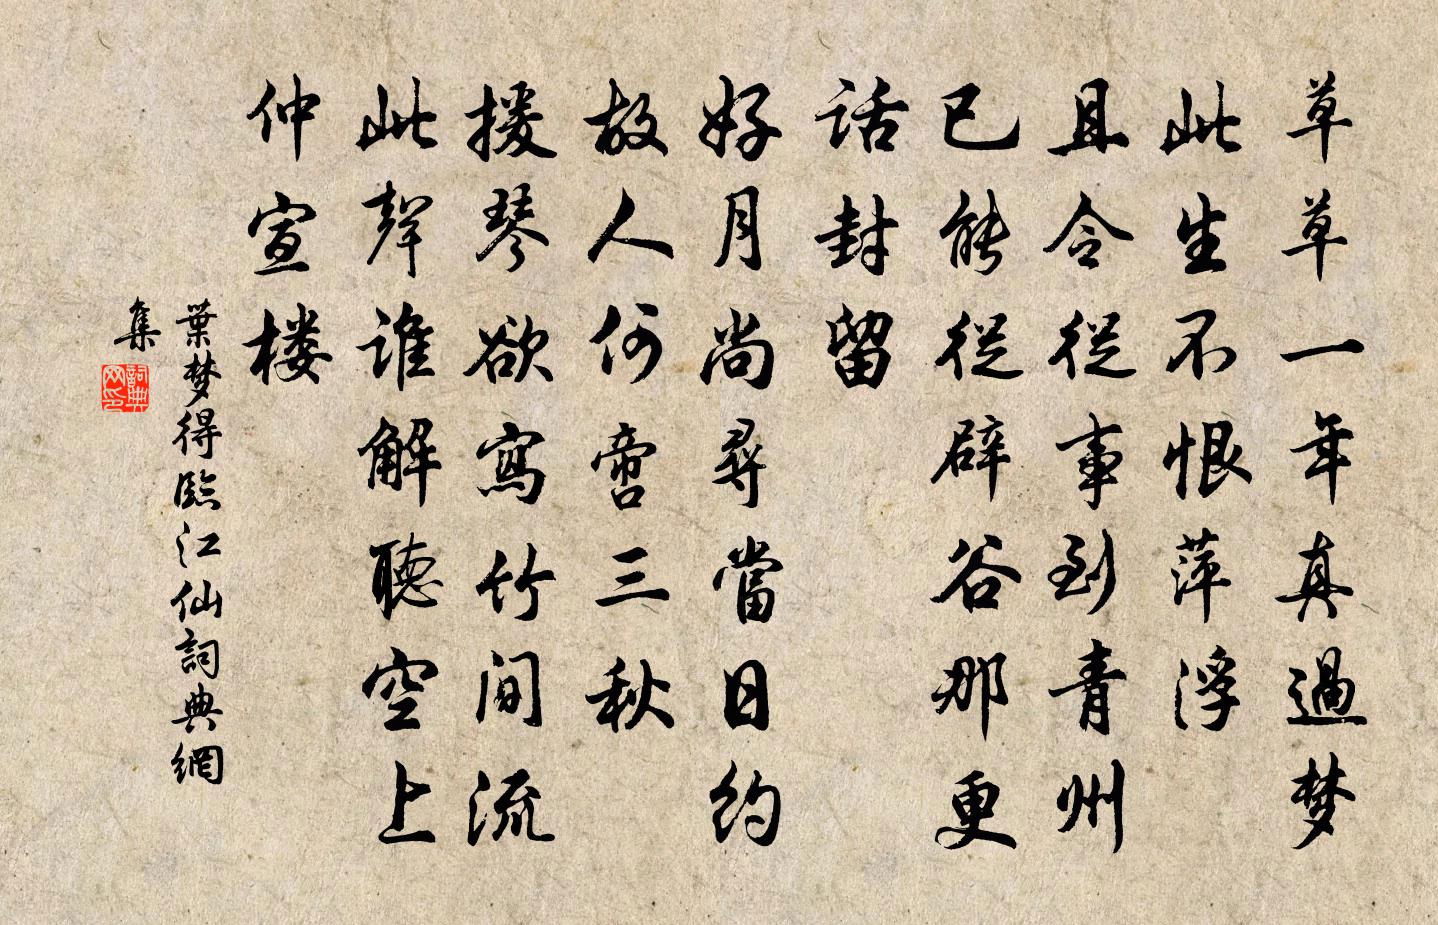 草草一年真過梦
此生不恨萍浮
且令從事到青州
已能從辟谷那更
话封留
好月尚尋當日約
故人何啻三秋
援琴欲寫竹间流
此聲谁解聽空上
仲宣楼
葉梦得臨江仙詞典網
集
詞典网印